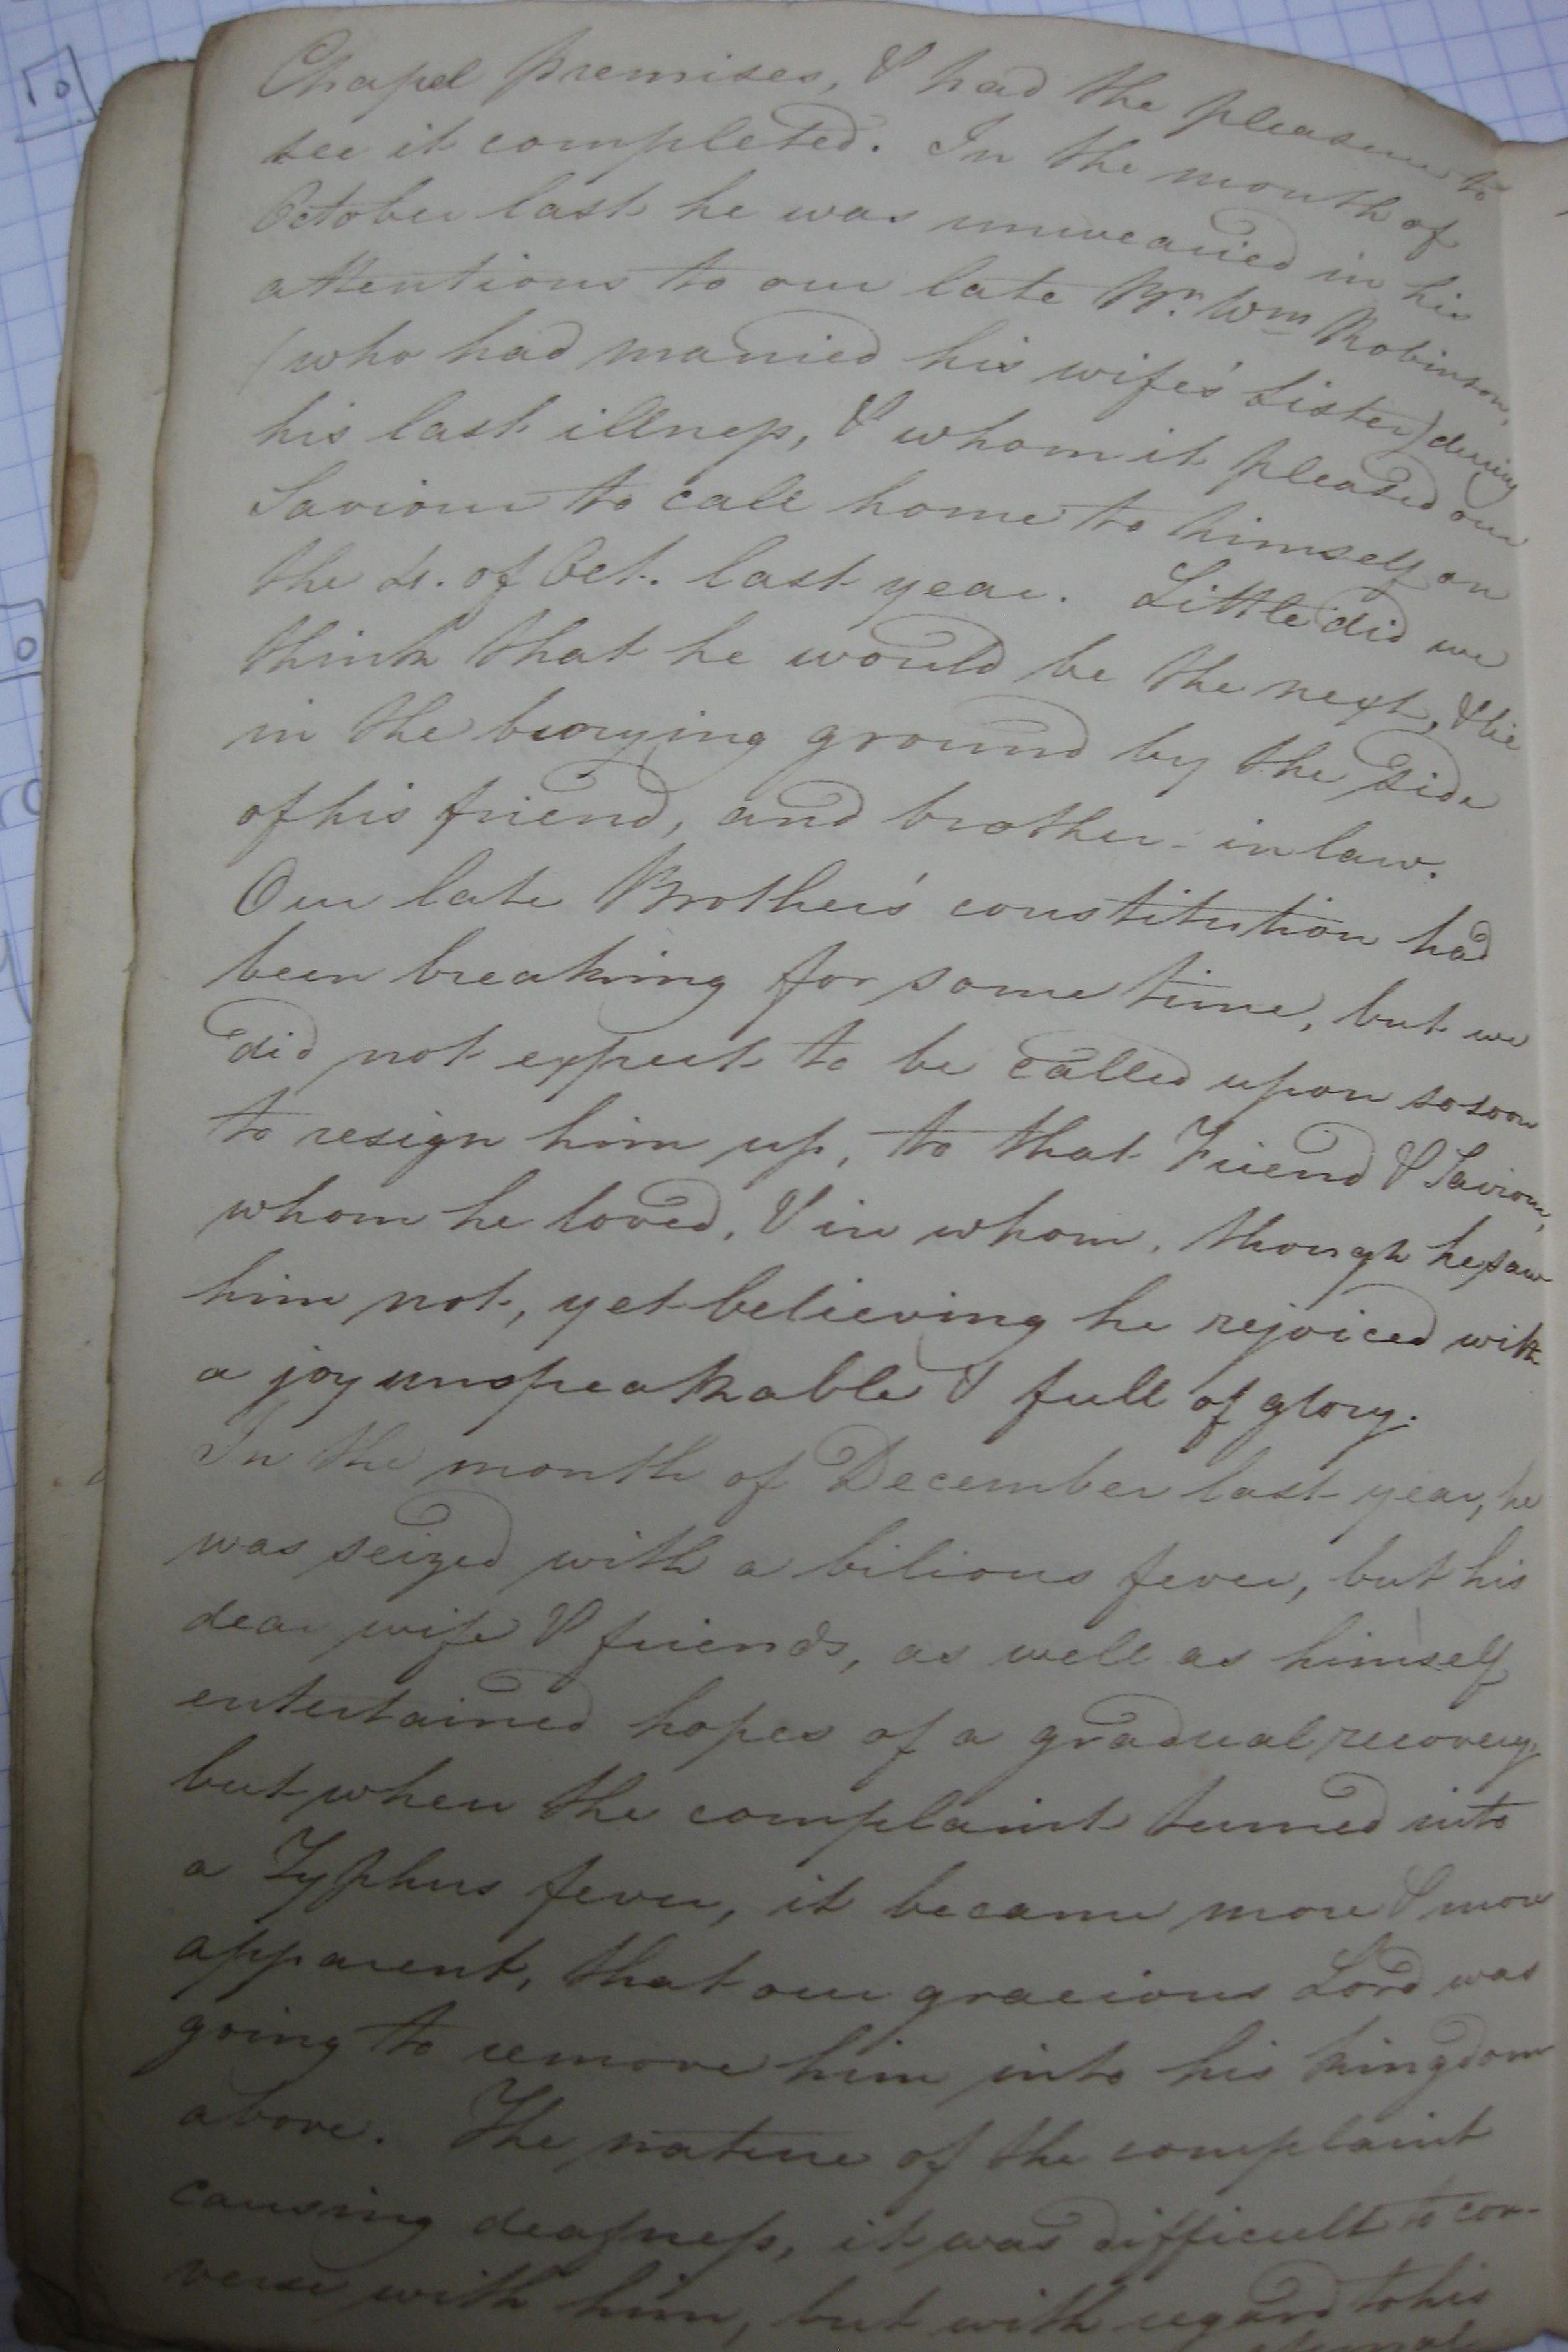 Chapel premises, & had the pleasure to
see it completed. In the month of
October last he was unwearied in his
attentions to our late Br. Wm Robinson,
(who had married his wife's sister) during
his last illness, & whom it pleased our
Saviour to call home to himself on
the 4. of Oct. last year. Little did we
think that he would be the next, & lie
in the burying ground by the side
of his friend, and brother-in law.
Our late Brother's constitution had
been breaking for some time, but we
did not expect to be called upon so soon
to resign him up, to that Friend & Saviour,
whom he loved, & in whom, though he saw
him not, yet believing he rejoiced with
a joy unspeakable & full of glory.
In the month of December last year, he
was seized with a bilious fever, but his
dear wife & friends, as well as himself
entertained hopes of a gradual recovery,
but when the complaint turned into
a Typhus fever, it became more & more
apparent, that our gracious Lord was
going to remove him into his kingdom
above. The nature of the complaint
causing deafness, it was difficult to con-
verse with him, but with regard to his